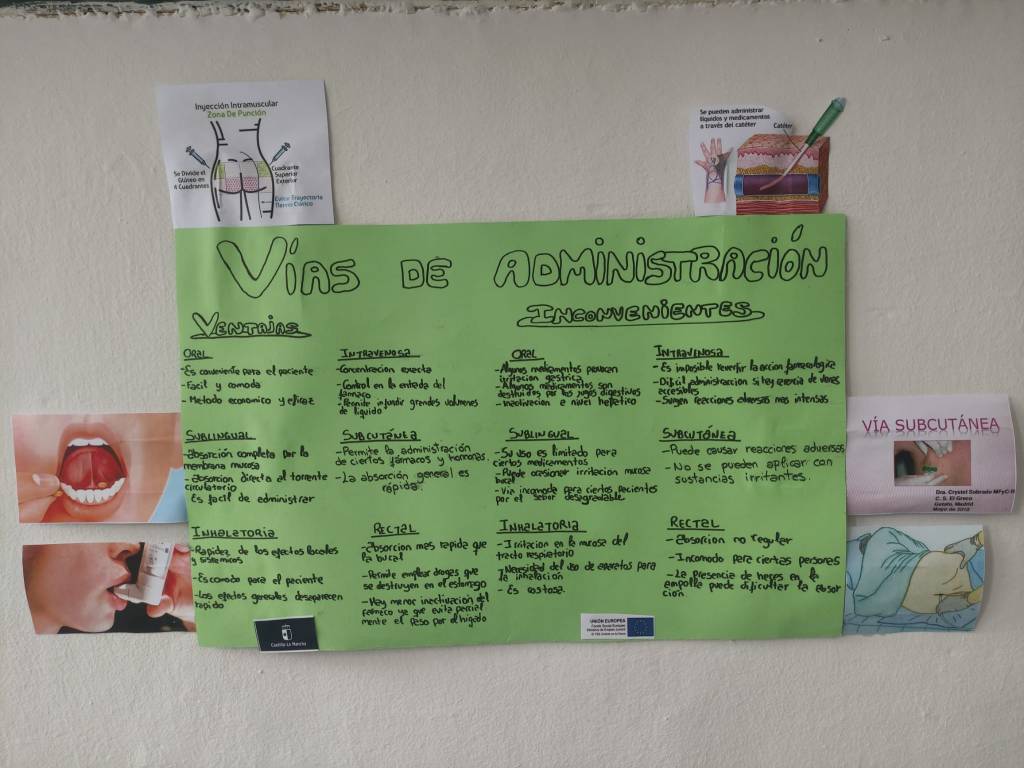 Inyección Intramuscular
Zona De Punción
Se Divide el
Glúteo en
4 Cuadrantes
Cuadrante
Superior
Exterior
Evitar Trayectoria
Nervio Ciático
Se pueden administrar
líquidos y medicamentos
a través del catéter
Catéter
VÍAS DE ADMINISTRACIÓN
VENTAJAS
ORAL
- Es conveniente para el paciente
- Facil y comoda
- Metodo economico y eficaz
INTRAVENOSA
- Concentracion exacta
- Control en la entrada del
farmaco
- Permite infundir grandes volumenes
de liquido
SUBLINGUAL
- absorción completa por la
membrana mucosa
- absorcion directa al torrente
circulatorio
Es facil de administrar
SUBCUTÁNEA
- Permite la administración
de ciertos fármacos y hormonas.
- La absorción general es
rápida.
INHALATORIA
- Rapidez de los efectos locales
y sistemicos
- Es comodo para el paciente
- Los efectos generales desaparecen
rapido
RECTAL
- Absorcion mas rapida que
la bucal
- Permite emplear drogas que
se destruyen en el estomago
- Hay menor inactivacion del
farmaco ya que evita parcial
mente el paso por el higado
INCONVENIENTES
ORAL
- Algunos medicamentos provocan
irritacion gastrica
- Algunos medicamentos son
destruidos por los jugos digestivos
- Inactivacion a nivel hepático
INTRAVINOSA
- Es imposible revertir la accion farmacologica
- Dificil administraccion si hay carencia de venas
accesibles
- Surgen reacciones adversas mas intensas
SUBLINGUAL
- Su uso es limitado para
ciertos medicamentos
- Puede ocasionar irritacion mucosa
bucal
- Via incomoda para ciertos pacientes
por el sabor desagradable
SUBCUTÓNEA
- Puede causar reacciones adversas
- No se pueden aplicar con
sustancias irritantes.
INHALATORIA
- Irritacion en la mucosa del
tracto respiratorio
- Necesidad del uso de aparatos para
la inhalacion
- Es costosa.
RECTAL
- Absorcion no regular
- Incomodo para ciertas personas
- La presencia de heces en la
ampolla puede dificultar la absor
cion.
VÍA SUBCUTÁNEA
Dra. Crystel Sobrado MFyC-R
C. S. El Greco
Getafe, Madrid
Mayo de 2012
Castilla-La Mancha
UNIÓN EUROPEA
Fondo Social Europeo